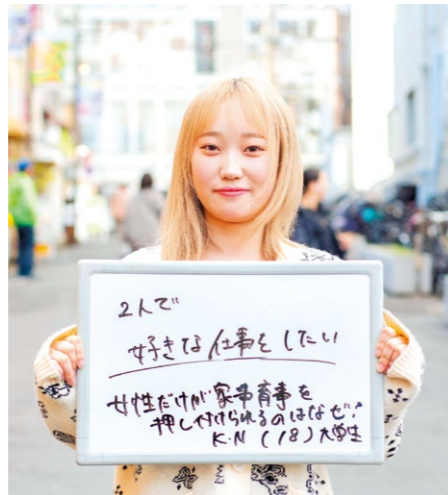 2人で
好きな仕事をしたい
女性だけが家事育事を
押し付けられるのはなぜ?
K・N (18) 大学生